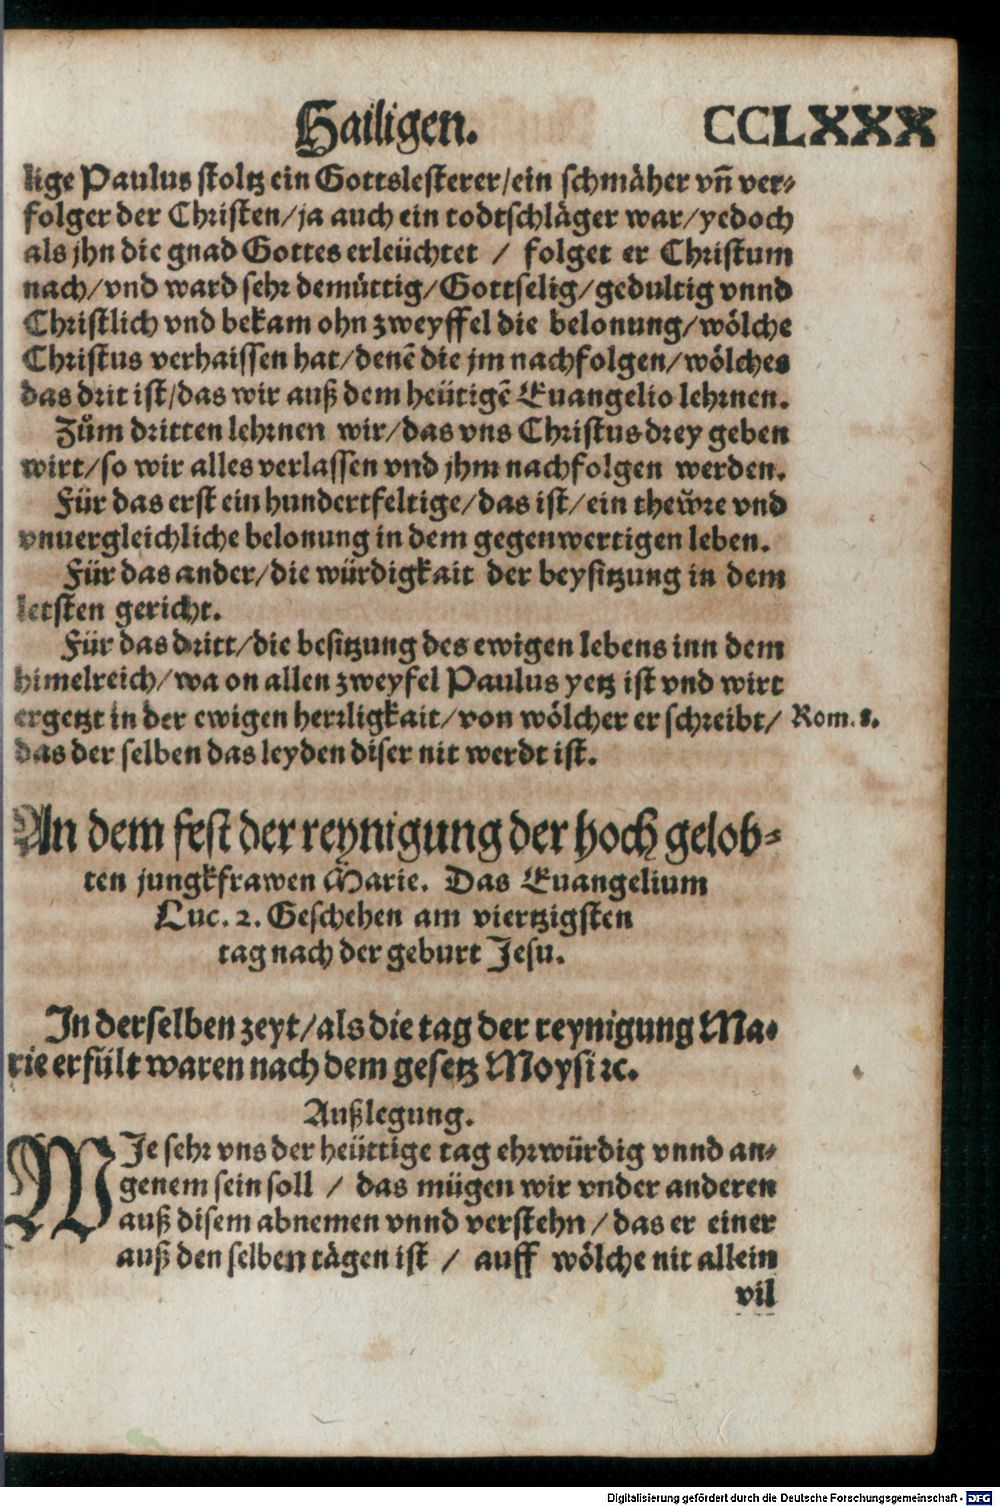 Hailigen. CCLXXX
lige Paulus stoltz ein Gottslesterer/ein schmäher vñ ver-
folger der Christen/ja auch ein todtschläger war/yedoch
als jhn die gnad Gottes erleüchtet / folget er Christum
nach/vnd ward sehr demüttig/Gottselig/gedultig vnnd
Christlich vnd bekam ohn zweyffel die belonung/wölche
Christus verhaissen hat/denē die jm nachfolgen/wölches
das drit ist/das wir auß dem heütigē Euangelio lehrnen.
Zům dritten lehrnen wir/das vns Christus drey geben
wirt/so wir alles verlassen vnd jhm nachfolgen werden.
Für das erst ein hundertfeltige/das ist/ein thewre vnd
vnuergleichliche belonung in dem gegenwertigen leben.
Für das ander/die würdigkait der beysitzung in dem
letsten gericht.
Für das dritt/die besitzung des ewigen lebens inn dem
himelreich/wa on allen zweyfel Paulus yetz ist vnd wirt
ergetzt in der ewigen herrligkait/von wölcher er schreibt/ Rom. 8.
das der selben das leyden diser nit werdt ist.
An dem fest der reynigung der hoch gelob-
ten jungkfrawen Marie. Das Euangelium
Luc. 2. Geschehen am viertzigsten
tag nach der geburt Jesu.
In derselben zeyt/als die tag der reynigung Ma-
rie erfült waren nach dem gesetz Moysi ꝛc.
Außlegung.
WIe sehr vns der heüttige tag ehrwürdig vnnd an-
genem sein soll / das mügen wir vnder anderen
auß disem abnemen vnnd verstehn/das er einer
auß den selben tägen ist / auff wölche nit allein
vil
Digitalisierung gefördert durch die Deutsche Forschungsgemeinschaft - DFG